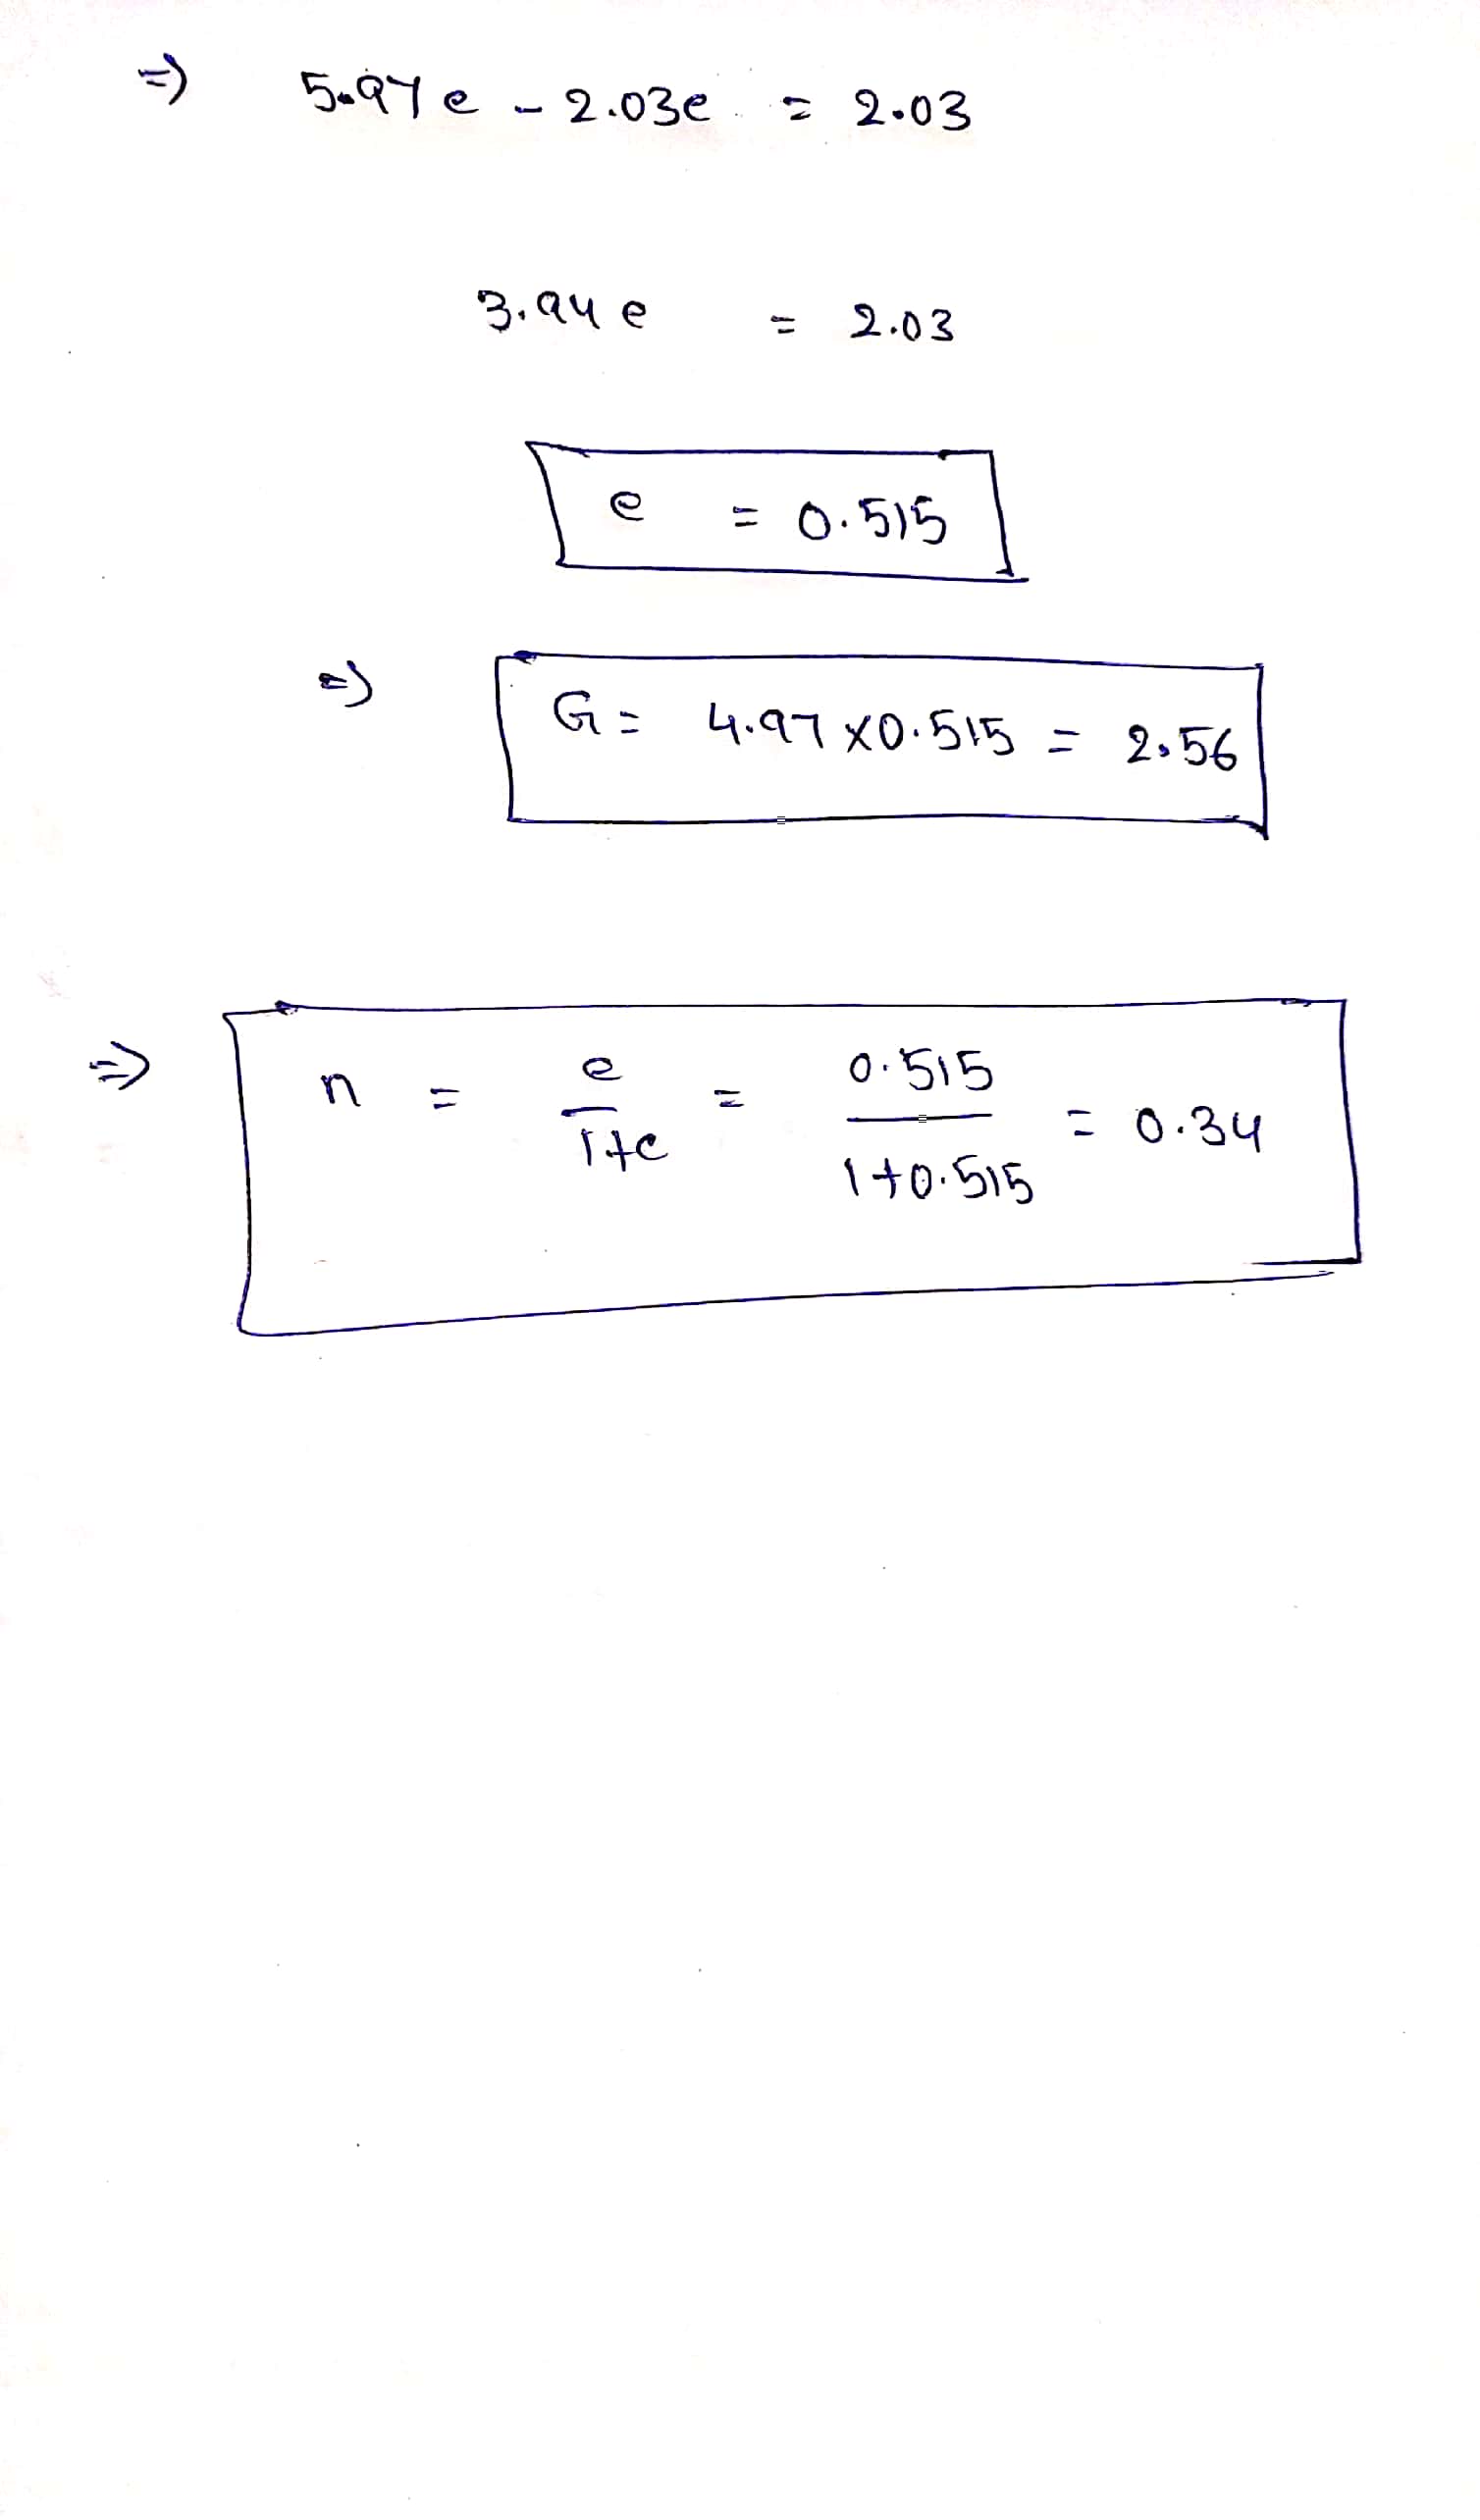 => 5.97e - 2.03e = 2.03
3.94e = 2.03
e = 0.515
=> G = 4.97 x 0.515 = 2.56
=> n = e/1+e = 0.515/1+0.515 = 0.34